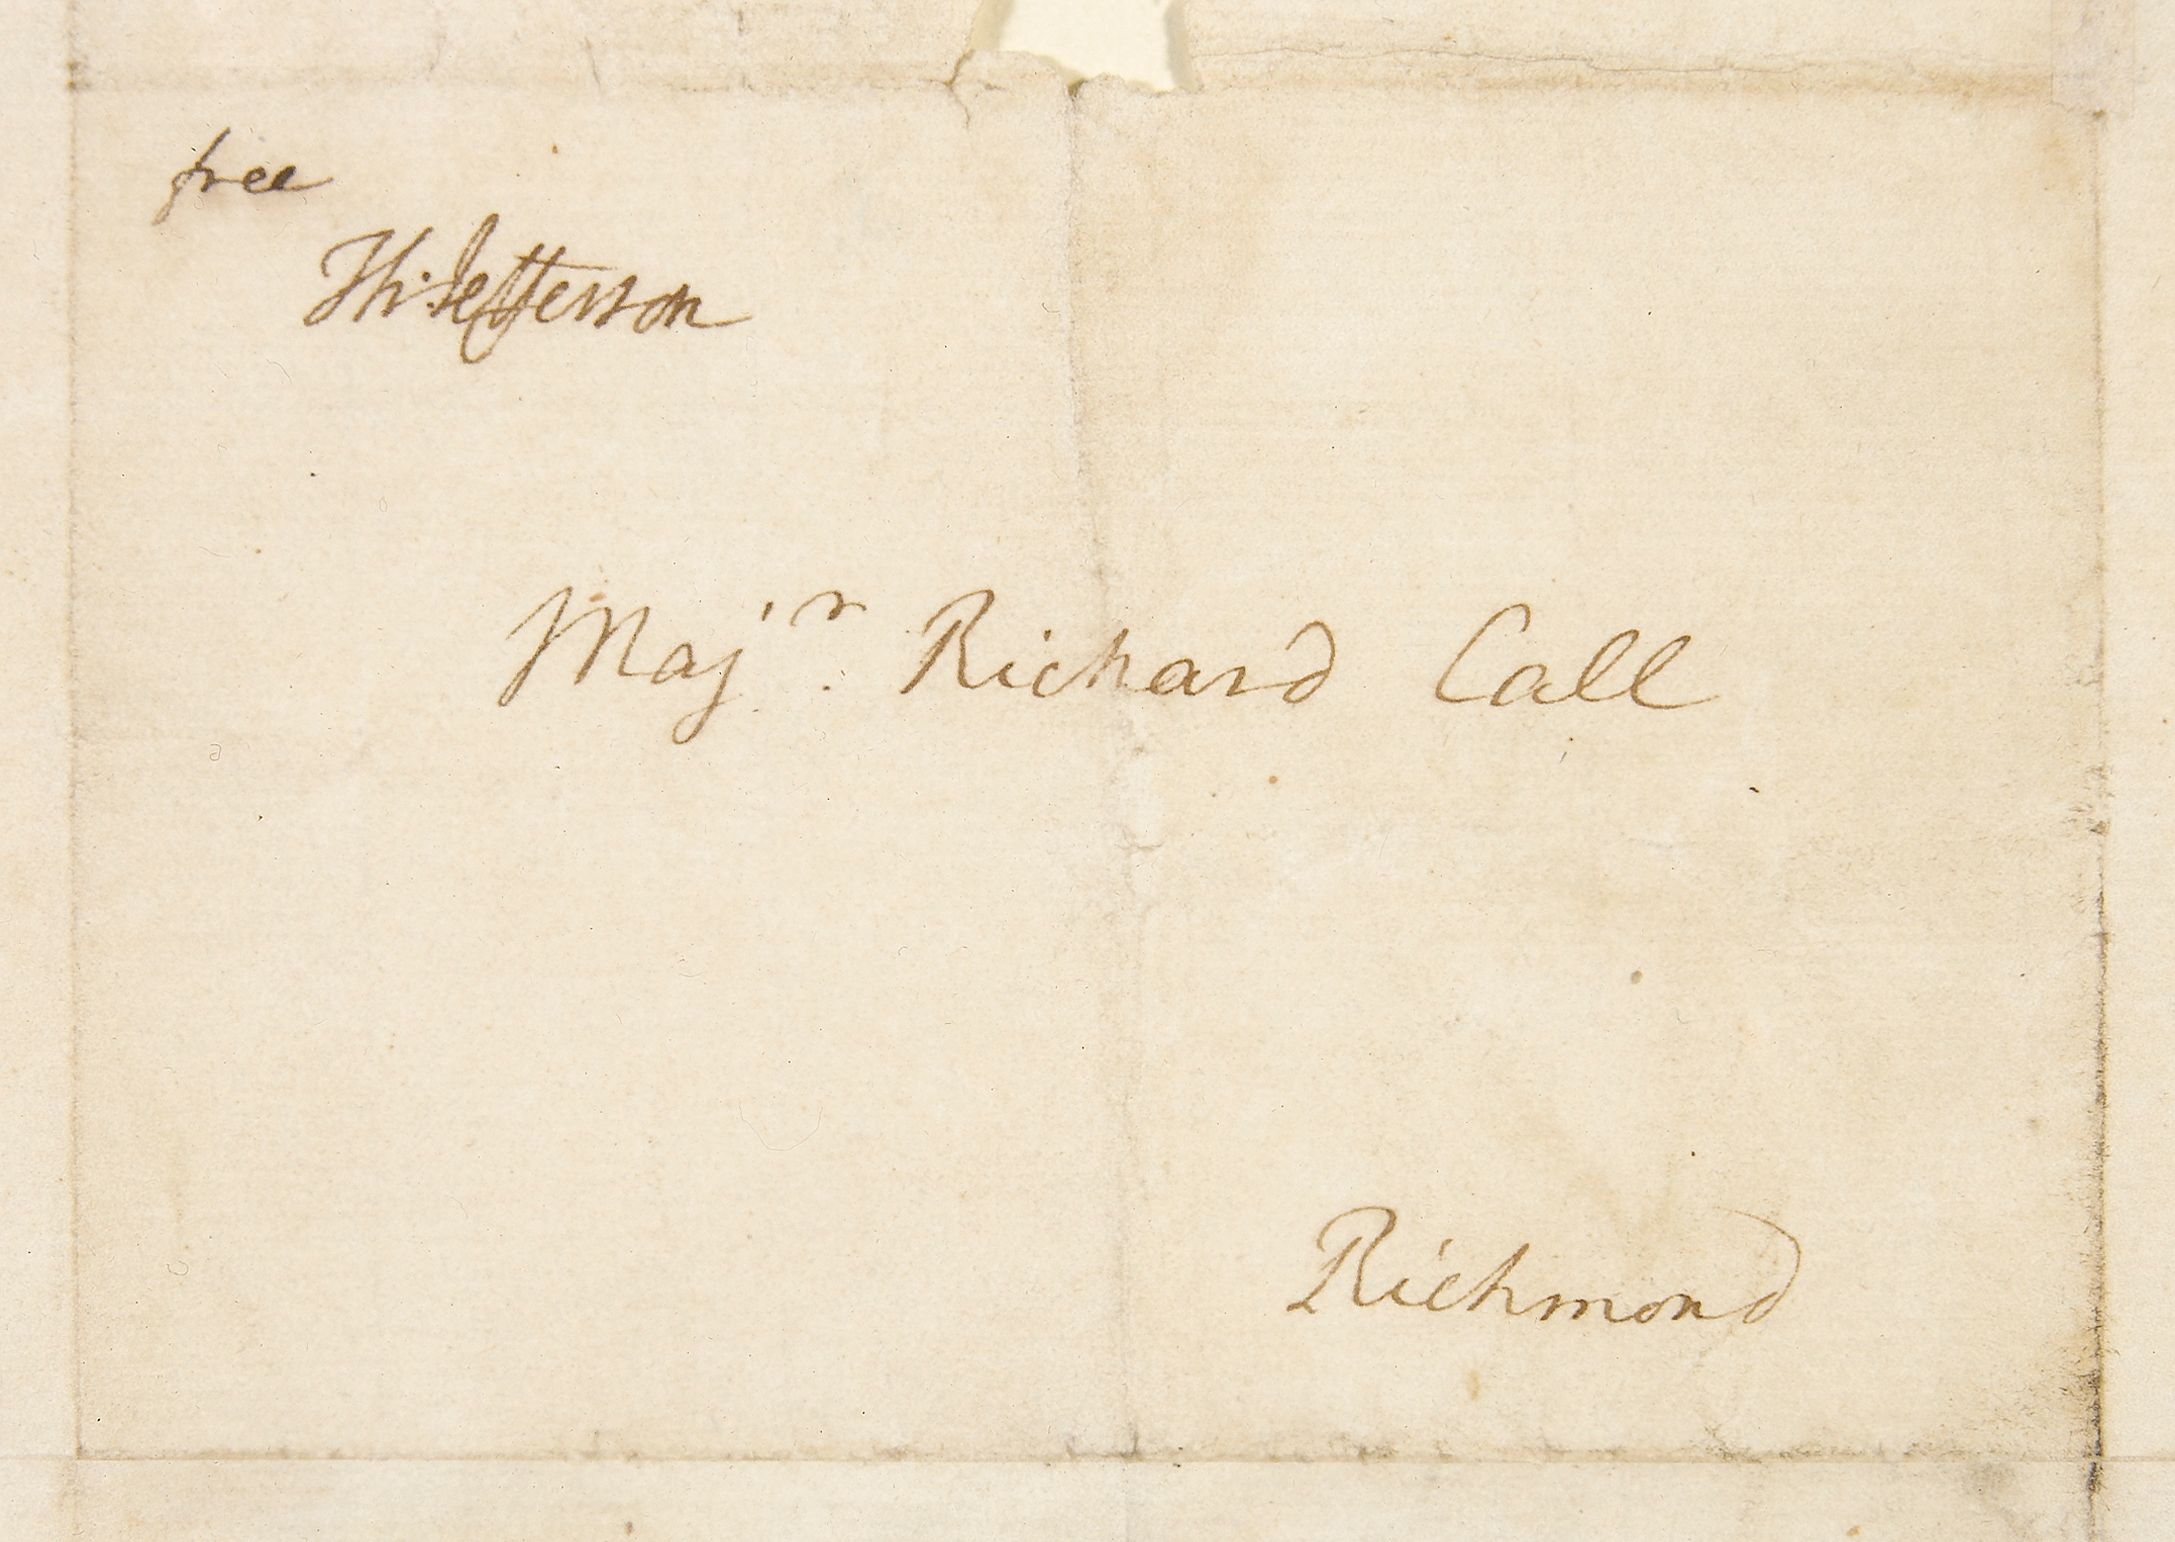 free
Th: Jefferson
Majʳ. Richard Call
Richmond